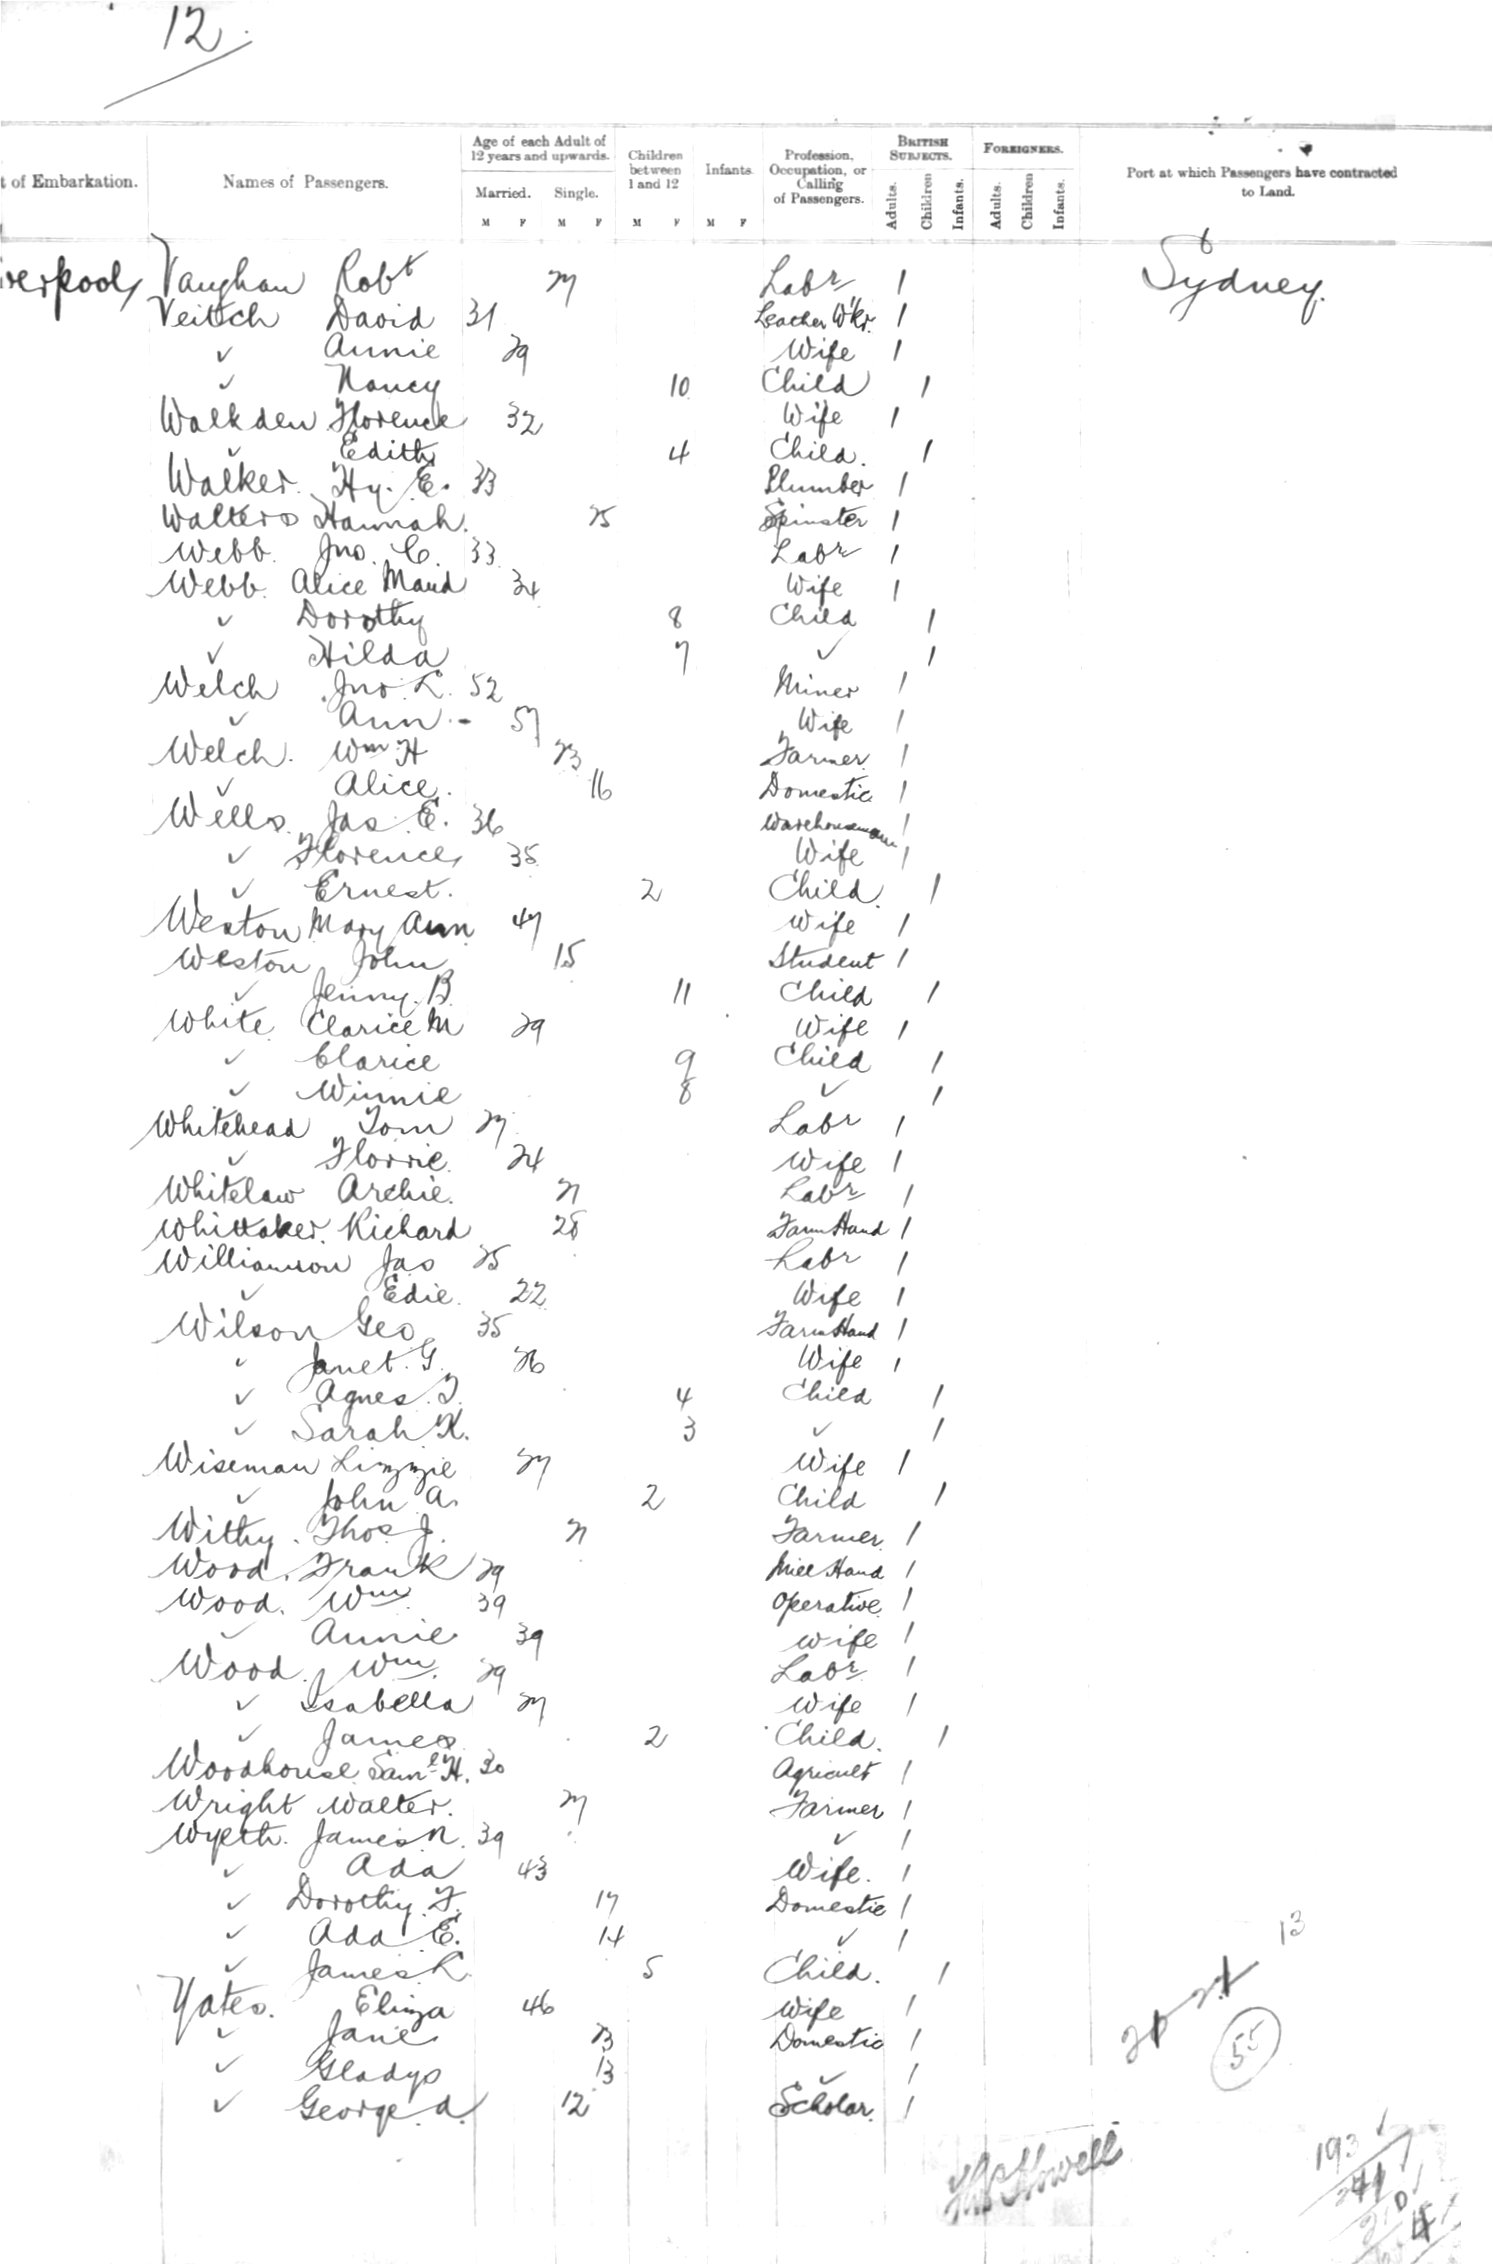 12.
t of Embarkation. Names of Passengers. Age of each Adult of 12 years and upwards. Children between 1 and 12 Infants. Profession, Occupation, or Calling of Passengers. BRITISH SUBJECTS. FOREIGNERS. Port at which Passengers have contracted to Land.
Married. Single. Adults. Children Infants. Adults. Children Infants.
M F M F M F M F
iverpool Vaughan Robt 27 Labr 1 Sydney.
Veitch David 31 Leather Wkr. 1
✓ Annie 29 Wife 1
✓ Nancy 10 Child 1
Walkden Florence 32 Wife 1
✓ Edith 4 Child. 1
Walker. Hy. E. 33 Plumber 1
Walters Hannah. 25 Spinster 1
Webb. Jno. C. 33 Labr 1
Webb. Alice Maud 34 Wife 1
✓ Dorothy 8 Child 1
✓ Hilda 7 ✓ 1
Welch Jno. L. 52 Miner 1
✓ Ann - 57 Wife 1
Welch. Wm H 23 Farmer. 1
✓ Alice. 16 Domestic 1
Wells. Jas. E. 36 Warehouseman 1
✓ Florence 35 Wife 1
✓ Ernest. 2 Child. 1
Weston Mary Ann 47 Wife 1
Weston John 15 Student 1
✓ Jenny. B. 11 Child 1
White Clarice M 29 Wife 1
✓ Clarice 9 Child 1
✓ Winnie 8 ✓ 1
Whitehead Tom 27 Labr 1
✓ Florrie. 24 Wife 1
Whitelaw Archie. 21 Labr 1
Whittaker. Richard 28 Farm Hand 1
Williamson Jas 25 Labr 1
✓ Edie. 22 Wife 1
Wilson Geo 35 Farm Hand 1
✓ Janet. G. 26 Wife 1
✓ Agnes. T. 4 Child 1
✓ Sarah K. 3 ✓ 1
Wiseman Lizzie 27 Wife 1
✓ John A. 2 Child 1
Withy. Thos J. 21 Farmer. 1
Wood. Frank 29 Mill Hand 1
Wood. Wm. 39 Operative. 1
✓ Annie 39 Wife 1
Wood. Wm. 29 Labr 1
✓ Isabella 27 Wife 1
✓ James 2 Child. 1
Woodhouse Saml H. 30 Agricult 1
Wright Walter. 27 Farmer 1
Wyeth. James N. 39 ✓ 1
✓ Ada 43 Wife. 1
✓ Dorothy. F. 17 Domestic 1
✓ Ada E. 14 ✓ 1
✓ James L. 5 Child. 1
Yates. Eliza 46 Wife 1
✓ Jane 23 Domestic 1
✓ Gladys 13 ✓ 1
✓ George. A. 12 Scholar. 1
13
55
Howell
193